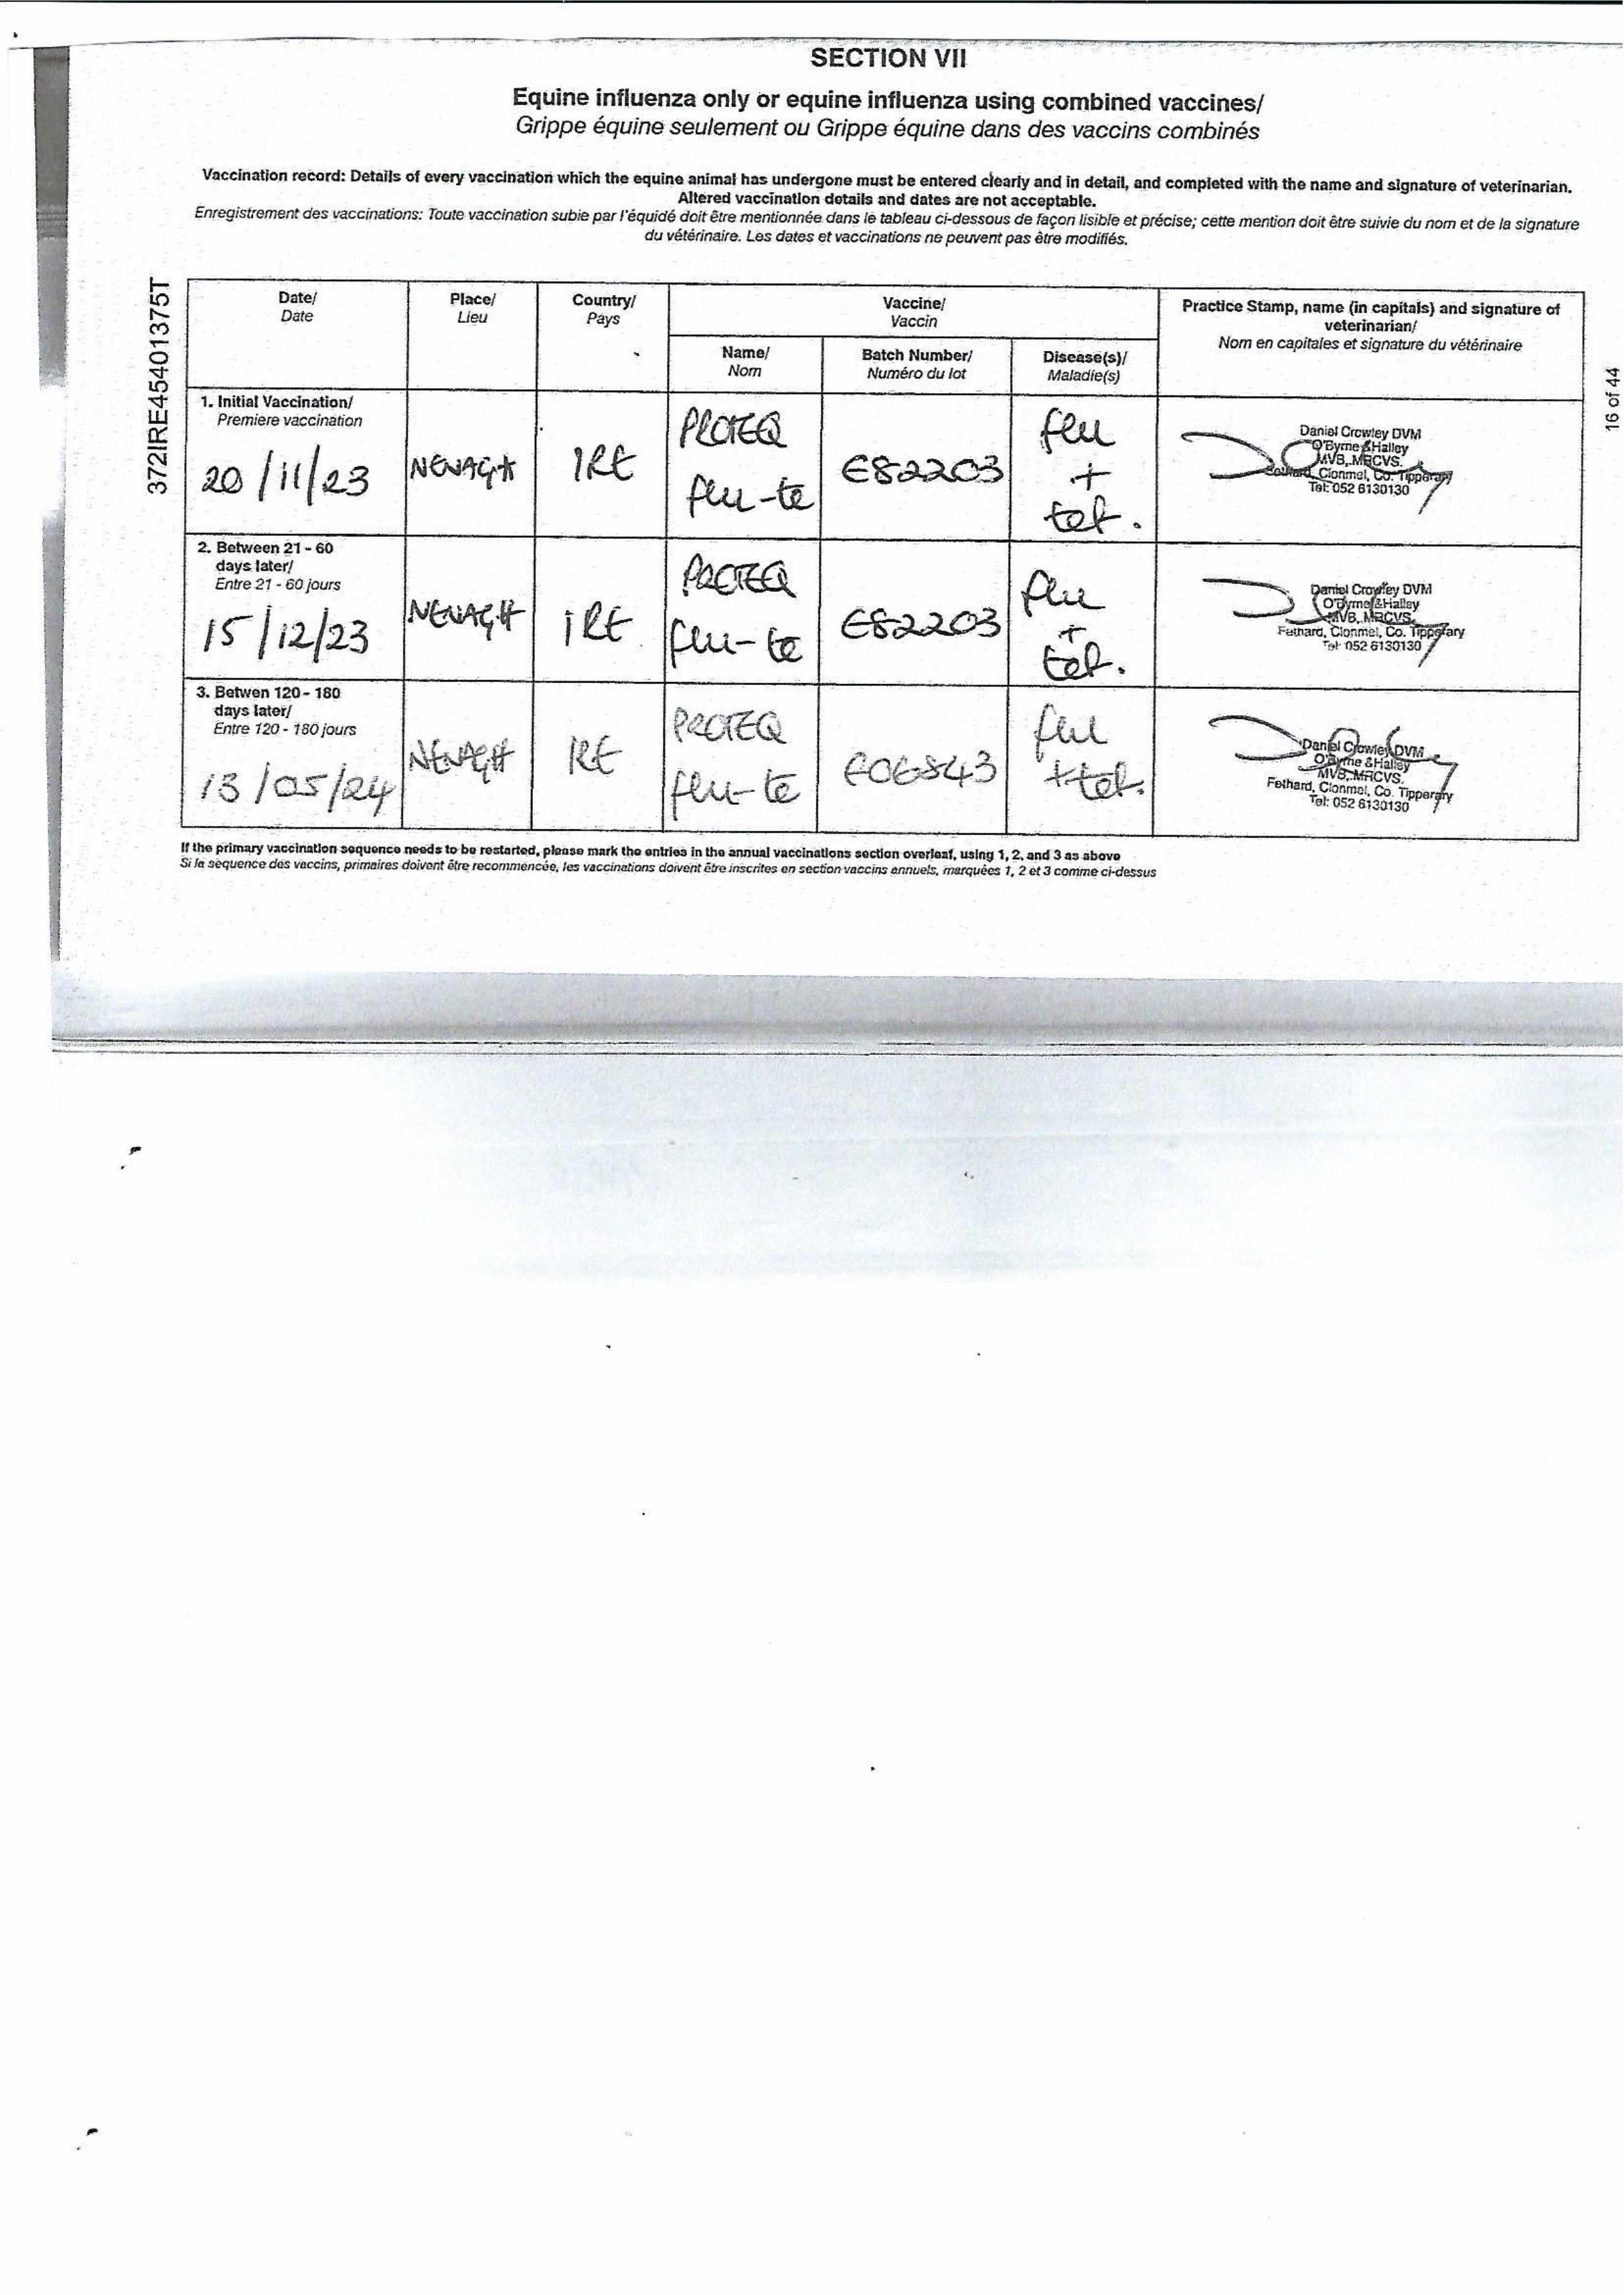 SECTION VII
Equine influenza only or equine influenza using combined vaccines/
Grippe équine seulement ou Grippe équine dans des vaccins combinés
Vaccination record: Details of every vaccination which the equine animal has undergone must be entered clearly and in detail, and completed with the name and signature of veterinarian.
Altered vaccination details and dates are not acceptable.
Enregistrement des vaccinations: Toute vaccination subie par l'équidé doit être mentionnée dans le tableau ci-dessous de façon lisible et précise; cette mention doit être suivie du nom et de la signature
du vétérinaire. Les dates et vaccinations ne peuvent pas être modifiés.
372IRE45401375T
16 of 44
Date/
Date
Place/
Lieu
Country/
Pays
Vaccine/
Vaccin
Name/
Nom
Batch Number/
Numéro du lot
Disease(s)/
Maladie(s)
Practice Stamp, name (in capitals) and signature of
veterinarian/
Nom en capitales et signature du vétérinaire
1. Initial Vaccination/
Premiere vaccination
20/11/23
NENAGH
IRE
PROTEQ
flu-te
E82203
flu
+
tet.
Daniel Crowley DVM
O'Byrne & Halley
MVB, MRCVS.
Fethard, Clonmel, Co. Tipperary
Tel: 052 6130130
2. Between 21 - 60
days later/
Entre 21 - 60 jours
15/12/23
NENAGH
IRE
PROTEQ
flu-te
E82203
flu
+
tet.
Daniel Crowley DVM
O'Byrne & Halley
MVB, MRCVS.
Fethard, Clonmel, Co. Tipperary
Tel: 052 6130130
3. Betwen 120 - 180
days later/
Entre 120 - 180 jours
13/05/24
NENAGH
IRE
PROTEQ
flu-te
E06843
flu
+tet.
Daniel Crowley DVM
O'Byrne & Halley
MVB, MRCVS.
Fethard, Clonmel, Co. Tipperary
Tel: 052 6130130
If the primary vaccination sequence needs to be restarted, please mark the entries in the annual vaccinations section overleaf, using 1, 2, and 3 as above
Si la séquence des vaccins, primaires doivent être recommencée, les vaccinations doivent être inscrites en section vaccins annuels, marquées 1, 2 et 3 comme ci-dessus